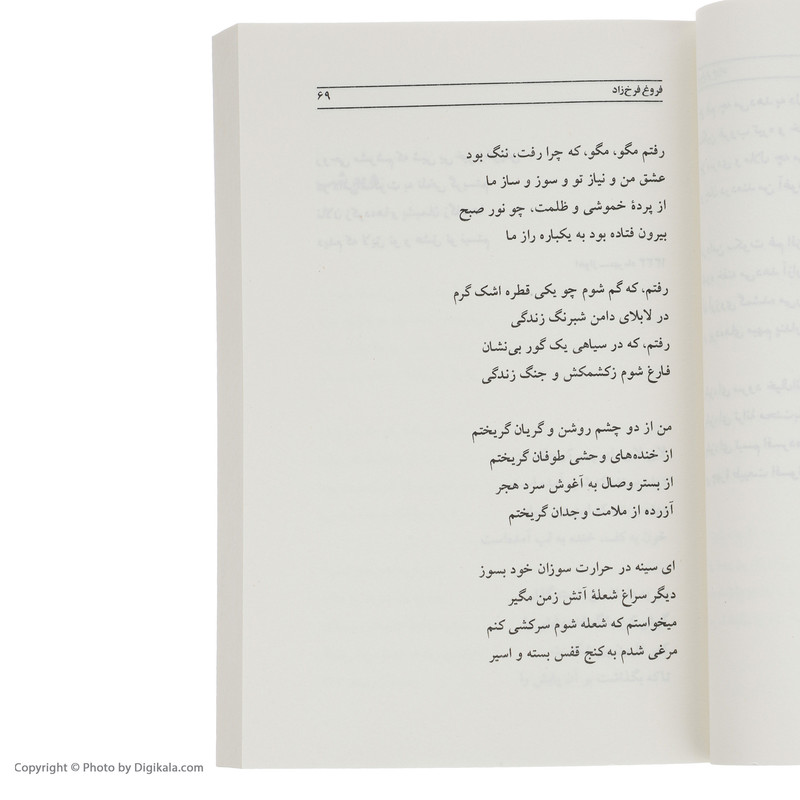 فروغ فرخ‌زاد ۶۹
رفتم مگو، مگو، که چرا رفت، ننگ بود
عشق من و نیاز تو و سوز و ساز ما
از پردهٔ خموشی و ظلمت، چو نور صبح
بیرون فتاده بود به یکباره راز ما
رفتم، که گم شوم چو یکی قطره اشک گرم
در لابلای دامن شبرنگ زندگی
رفتم، که در سیاهی یک گور بی‌نشان
فارغ شوم زکشمکش و جنگ زندگی
من از دو چشم روشن و گریان گریختم
از خنده‌های وحشی طوفان گریختم
از بستر وصال به آغوش سرد هجر
آزرده از ملامت وجدان گریختم
ای سینه در حرارت سوزان خود بسوز
دیگر سراغ شعلهٔ آتش زمن مگیر
میخواستم که شعله شوم سرکشی کنم
مرغی شدم به کنج قفس بسته و اسیر
Copyright © Photo by Digikala.com